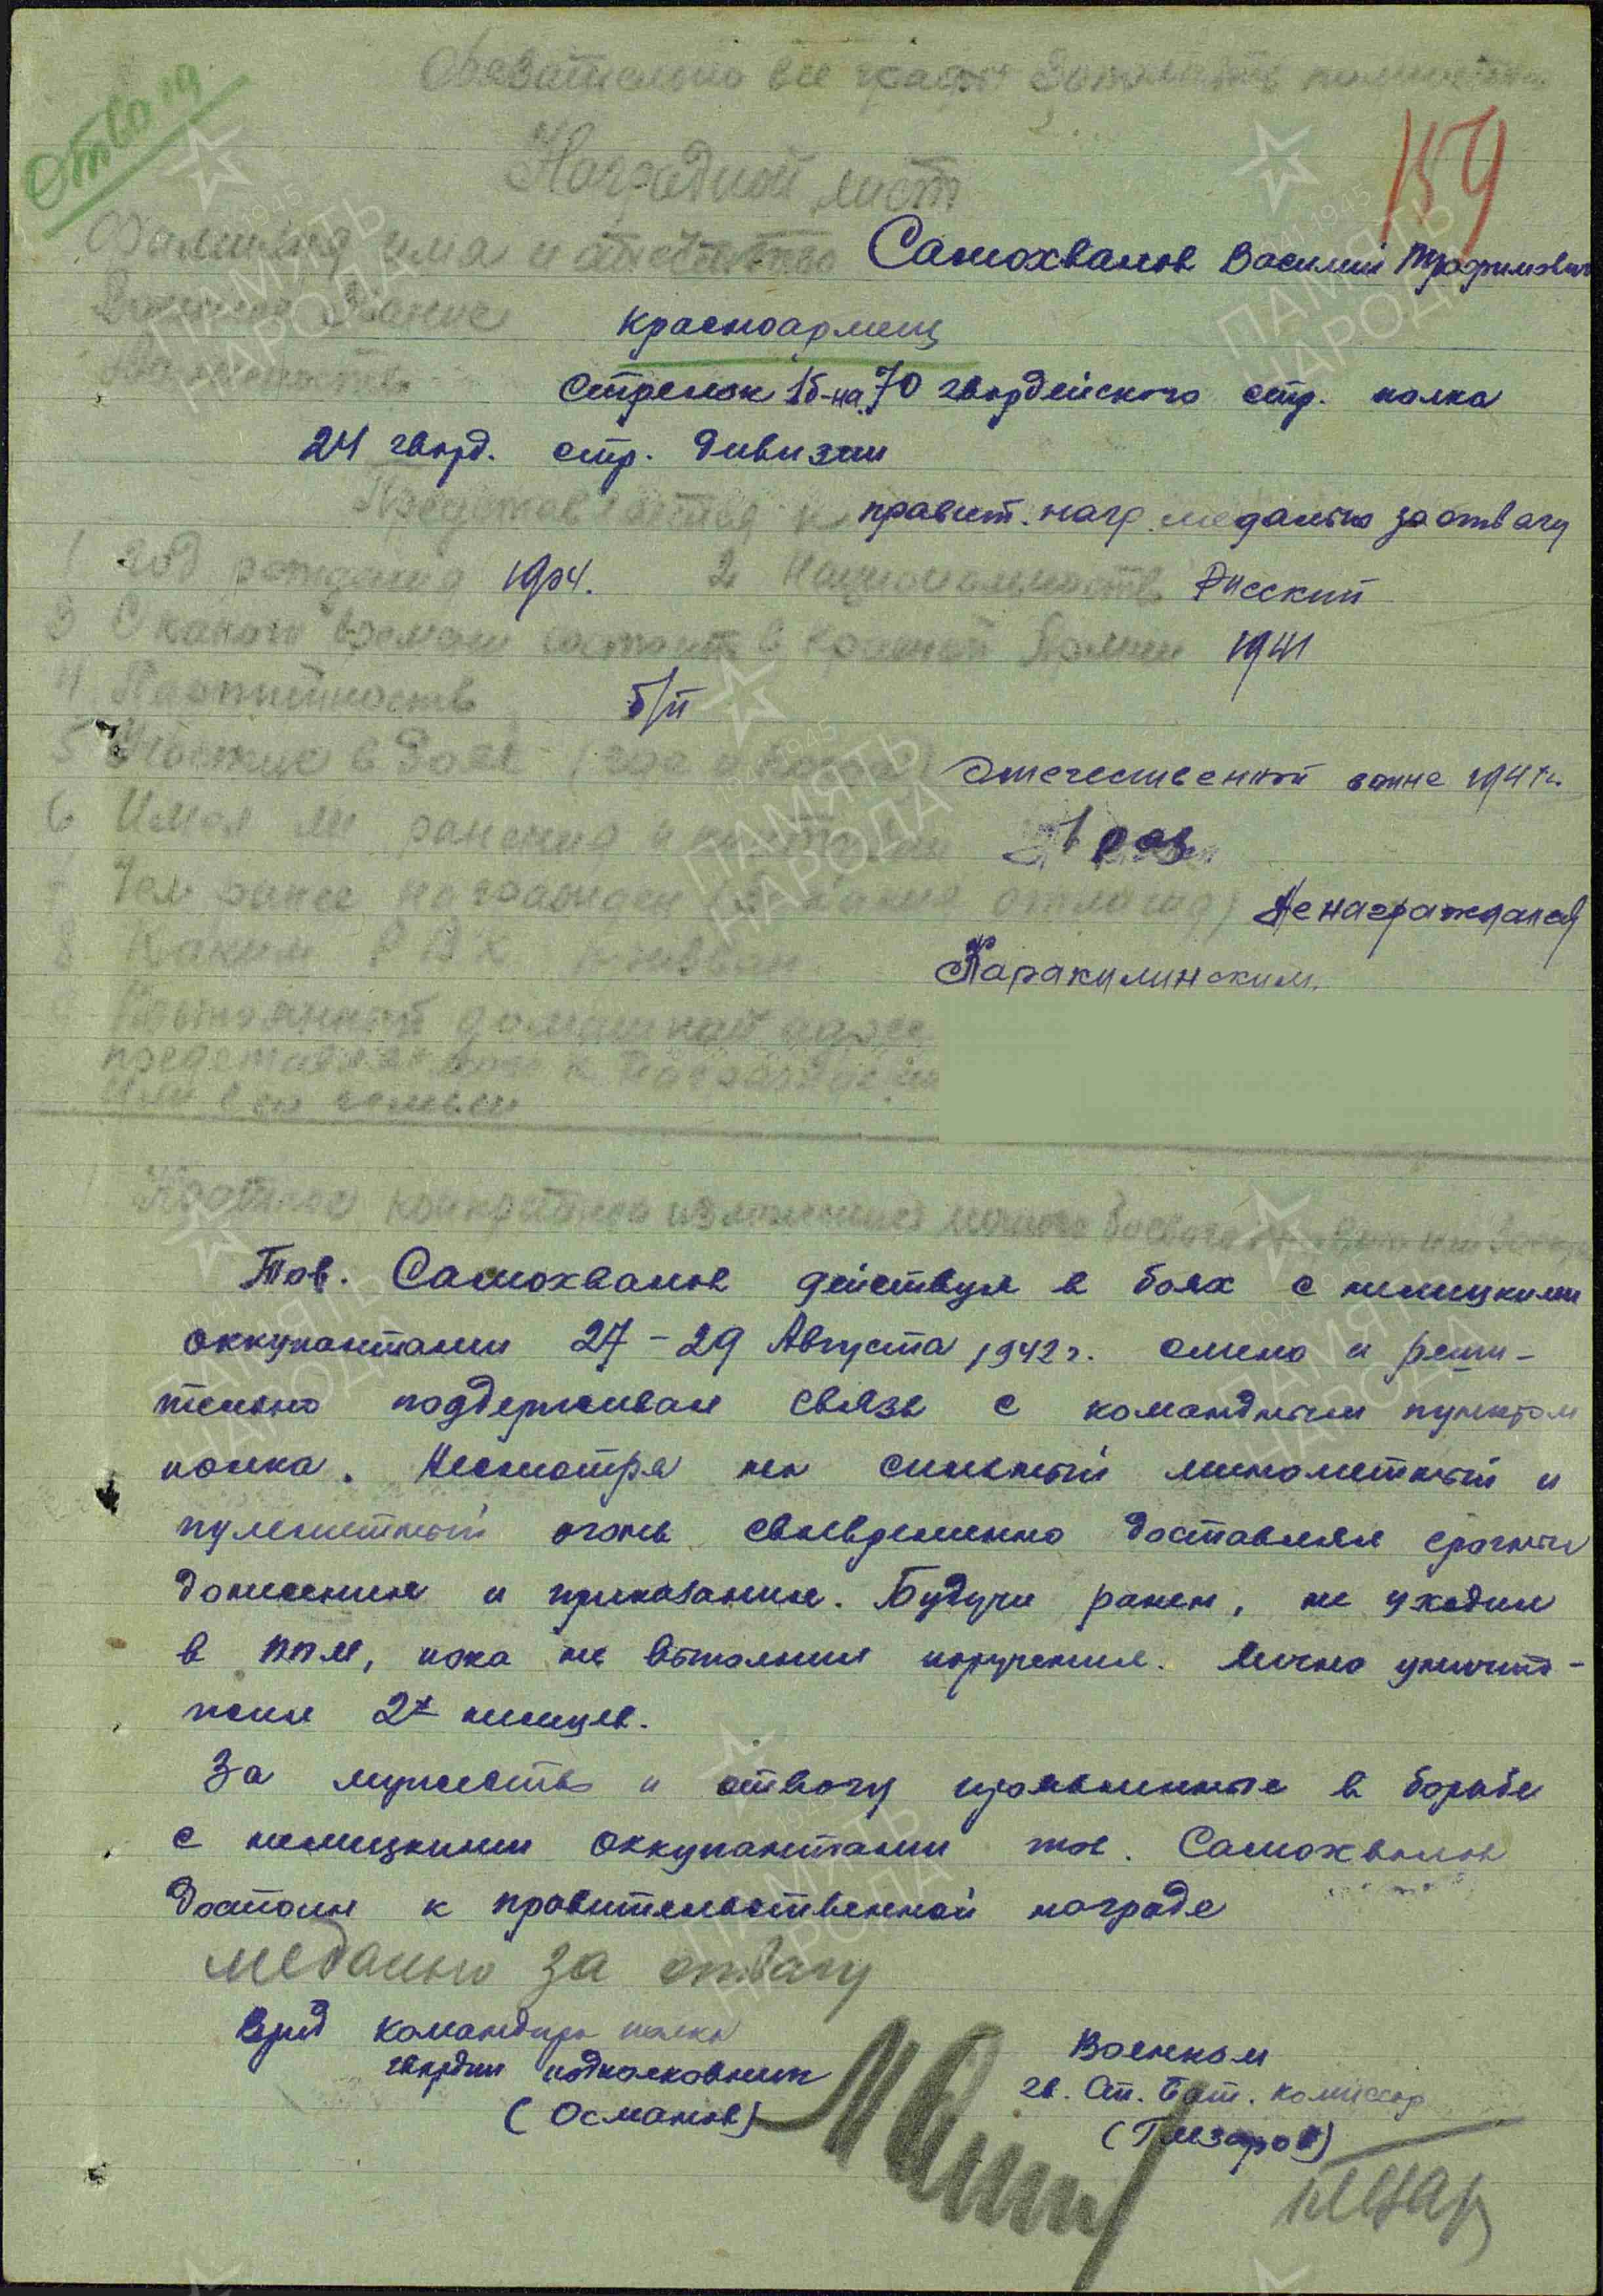 Обязательно все графы заполнить
Отвага
159
Наградной лист
Фамилия имя и отчество Самохвалов Василий Трофимович
Военное звание красноармеец
Должность стрелок 1б-на 70 гвардейского стр. полка
24 гвард. стр. дивизии
Представляется к правит. нагр. медалью за отвагу
1 Год рождения 1904. 2 Национальность Русский
3 С какого времени состоит в Красной Армии 1941
4 Партийность б/п
5 Участие в боях (где и когда) Отечественной воине 1941 г.
6 Имел ли ранения и контузии 1 раз
7 Чем ранее награжден (за какие отличия) Не награждался
8 Каким РВК призван Каракулинским
9 Постоянный домашний адрес
представляемого к награждению
или его семьи
Краткое конкретное изложение личного боевого
Тов. Самохвалов действуя в боях с немецкими
оккупантами 27-29 Августа 1942 г. смело и реши-
тельно поддерживал связь с командным пунктом
полка. Несмотря на сильный минометный и
пулеметный огонь своевременно доставлял срочные
донесения и приказания. Будучи ранен, не уходил
в ППМ, пока не выполнил поручения. Лично уничто-
жил 2х немцев.
За мужество и отвагу проявленные в борьбе
с немецкими оккупантами тов. Самохвалов
достоин к правительственной награде
медалью за отвагу
Врид командира полка
гвардии подполковник
(Османов)
Военком
гв. Ст. Бат. комиссар
(Гизаров)
ПАМЯТЬ
НАРОДА
1941 1945